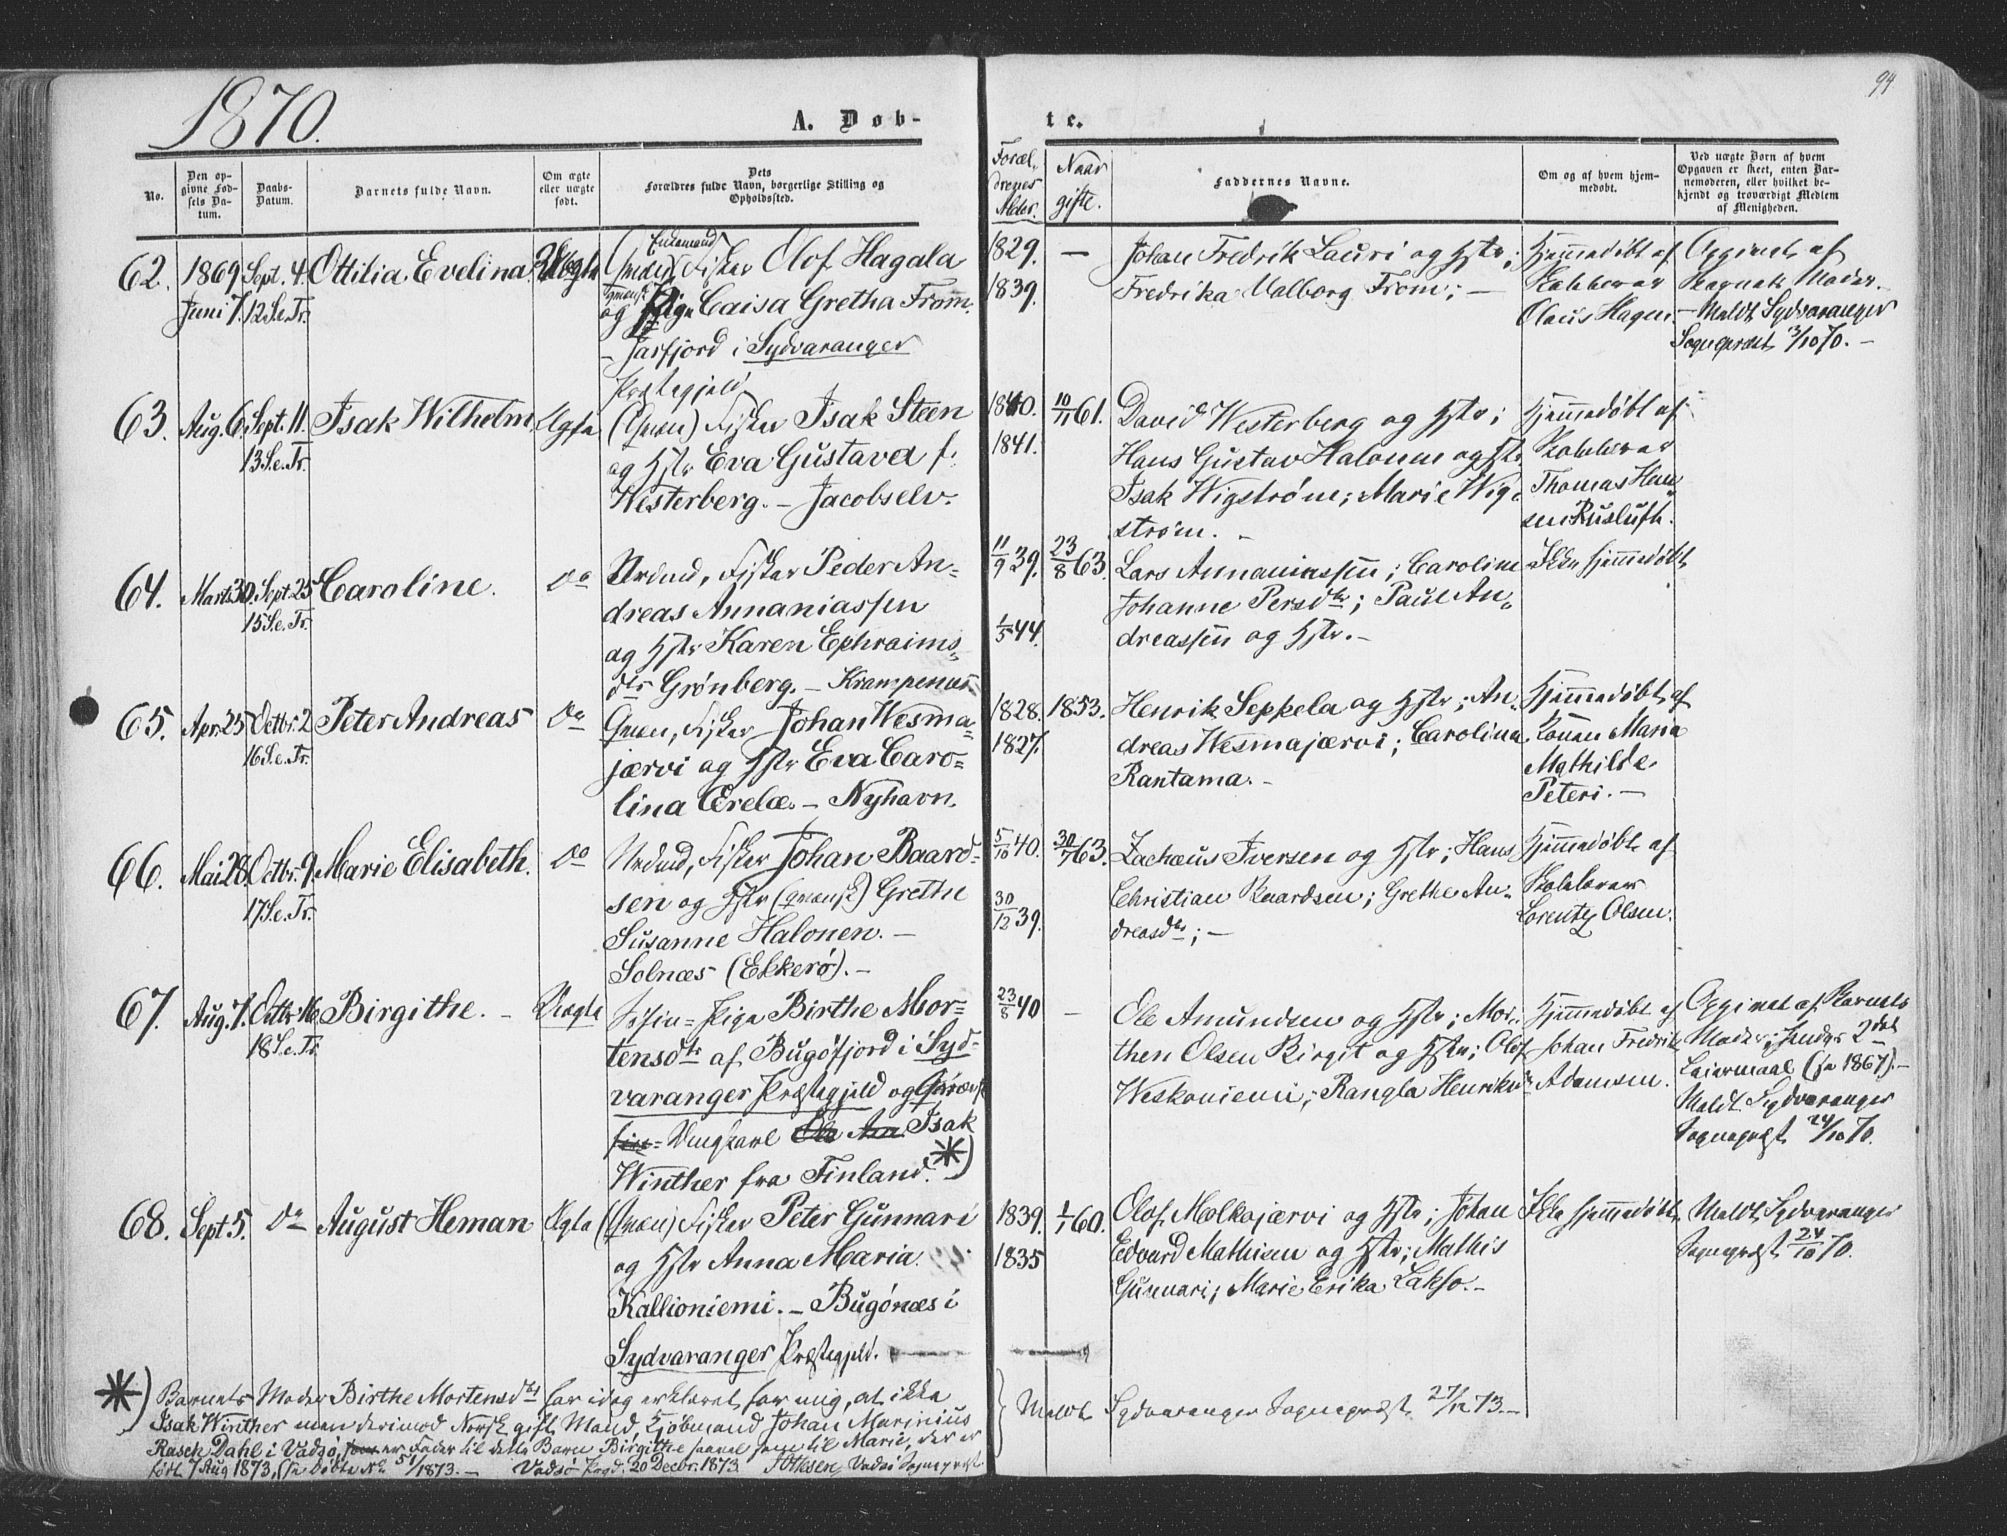 1870.
94
A. Døb-
te.
No.
Den op-
givne Fød-
sels Da-
tum.
Daabs-
Datum.
Barnets fulde Navn.
Om ægte
eller uægte
født.
Dets
Forældres fulde Navn, borgerlige Stilling og
Opholdssted.
Foræl-
drenes
Alder.
Naar
gifte.
Faddernes Navne.
Om og af hvem hjem-
medøbt.
Ved uægte Børn af hvem
Opgaven er skeet, enten Bar-
nemoderen, eller hvilket be-
kjendt og troværdigt Medlem
af Menigheden.
62.
1869
Juni 7.
Sept. 4.
12 S. e. Tr.
Ottilia Evelina.
Uægte
Enkemand
Qvæn, Fisker Olof Hagala
og Pige Caisa Gretha From.
- Jarfjord i Sydvaranger
Præstegjeld
1829.
1839.
—
Johan Fredrik Lauri og Hstr;
Fredrika Valborg From; —
Hjemmedøbt af
Olaus Hagen.
Opgivet af
Barnets Moder.
- Meldt Sydvaranger
Sognepræst 3/10 70. —
63.
Aug. 6.
Sept. 11.
13 S. e. Tr.
Isak Wilhelm
Ægte
(Qvæn) Fisker Isak Steen
og Hstr Eva Gustava f.
Westerberg. - Jacobselv.
1840.
1841.
10/11 61.
David Westerberg og Hstr;
Hans Gustav Halonen og Hstr
Isak Wigstrøm; Marie Wig-
strøm. -
Hjemmedøbt af
Thomas Han-
sen Rusluft.
64.
Marts 30.
Sept. 25
15 S. e. Tr.
Caroline.
Do
Nordmd, Fisker Peder An-
dreas Annaniassen
og Hstr Karen Ephraims-
dtr Grønberg. - Krampenæs.
11/9 39.
1/5 44.
23/8 63.
Lars Annaniassen; Caroline
Johanne Persdtr; Paul An-
dreassen og Hstr. -
Ikke hjemmedøbt
65.
Apr. 25
Octbr. 2
16 S. e. Tr.
Peter Andreas
Do
Qvæn, Fisker Johan Wesma-
jærvi og Hstr Eva Caro-
lina Erelæ. - Nyhavn.
1828.
1827.
1853.
Henrik Seppela og Hstr; An-
dreas Wesmajærvi; Carolina
Rantama. -
Hjemmedøbt af
Konen Maria
Mathilde
Peteri. —
66.
Mai 28.
Octbr. 9.
17 S. e. Tr.
Marie Elisabeth.
Do
Nordmd, Fisker Johan Baard-
sen og Hstr (qvænsk) Grethe
Susanne Halonen. —
Solnæs (Ekkerø). —
5/10 40.
30/12 39.
30/7 63.
Zachæus Iversen og Hstr; Hans
Christian Baardsen; Grethe An-
dreasdtr; —
Hjemmedøbt af
Lorentz Olsen.
67.
Aug. 7.
Octbr. 16
18 S. e. Tr.
Birgithe. —
Uægte
Søfin- Pige Birthe Mor-
tensdtr af Bugøfjord i Syd-
varanger Præstegjeld og Qvæn
fin- Ungkarl Ole An Isak *)
Winther fra Finland.
23/8 40
—
Ole Amundsen og Hstr; Mor-
then Olsen Birgit og Hstr; Olof
Weskoniemi; Rangla Henriksdtr
Hjemmedøbt af
Johan Fredrik
Adamsen.
Opgivet af Barnets
Moder; hendes 2det
Leiermaal (se 1867). -
Meldt Sydvaranger
Sognepræst 24/10 70.
68.
Sept 5.
Do
August Heman
Ægte
(Qvæn) Fisker Peter Gunnari
og Hstr Anna Maria
Kallioniemi. - Bugønæs i
Sydvaranger Præstegjeld.
1839.
1835
1/1 60.
Olof Molkojærvi og Hstr; Johan
Edvard Mathisen og Hstr; Mathis
Gunnari; Marie Erika Lakso. -
Ikke hjemmedøbt.
Meldt Sydvaranger
Sognepræst 24/10 70.
*) Barnets Moder Birthe Mortensdtr har idag erklæret for mig, at ikke
Isak Winther men derimod Norsk gift Mand, Kjøbmand Johan Marinius
Rasch Dahl i Vadsø, som er Fader til dette Barn Birgithe saavel som til Marie, der er
født 7 Aug 1873, (se Døbte No 51/1873. - Vadsø Prgd: 20 Decbr. 1873. Vadsø Sognepræst
Meldt Sydvaranger Sognepræst 27/12 73. —